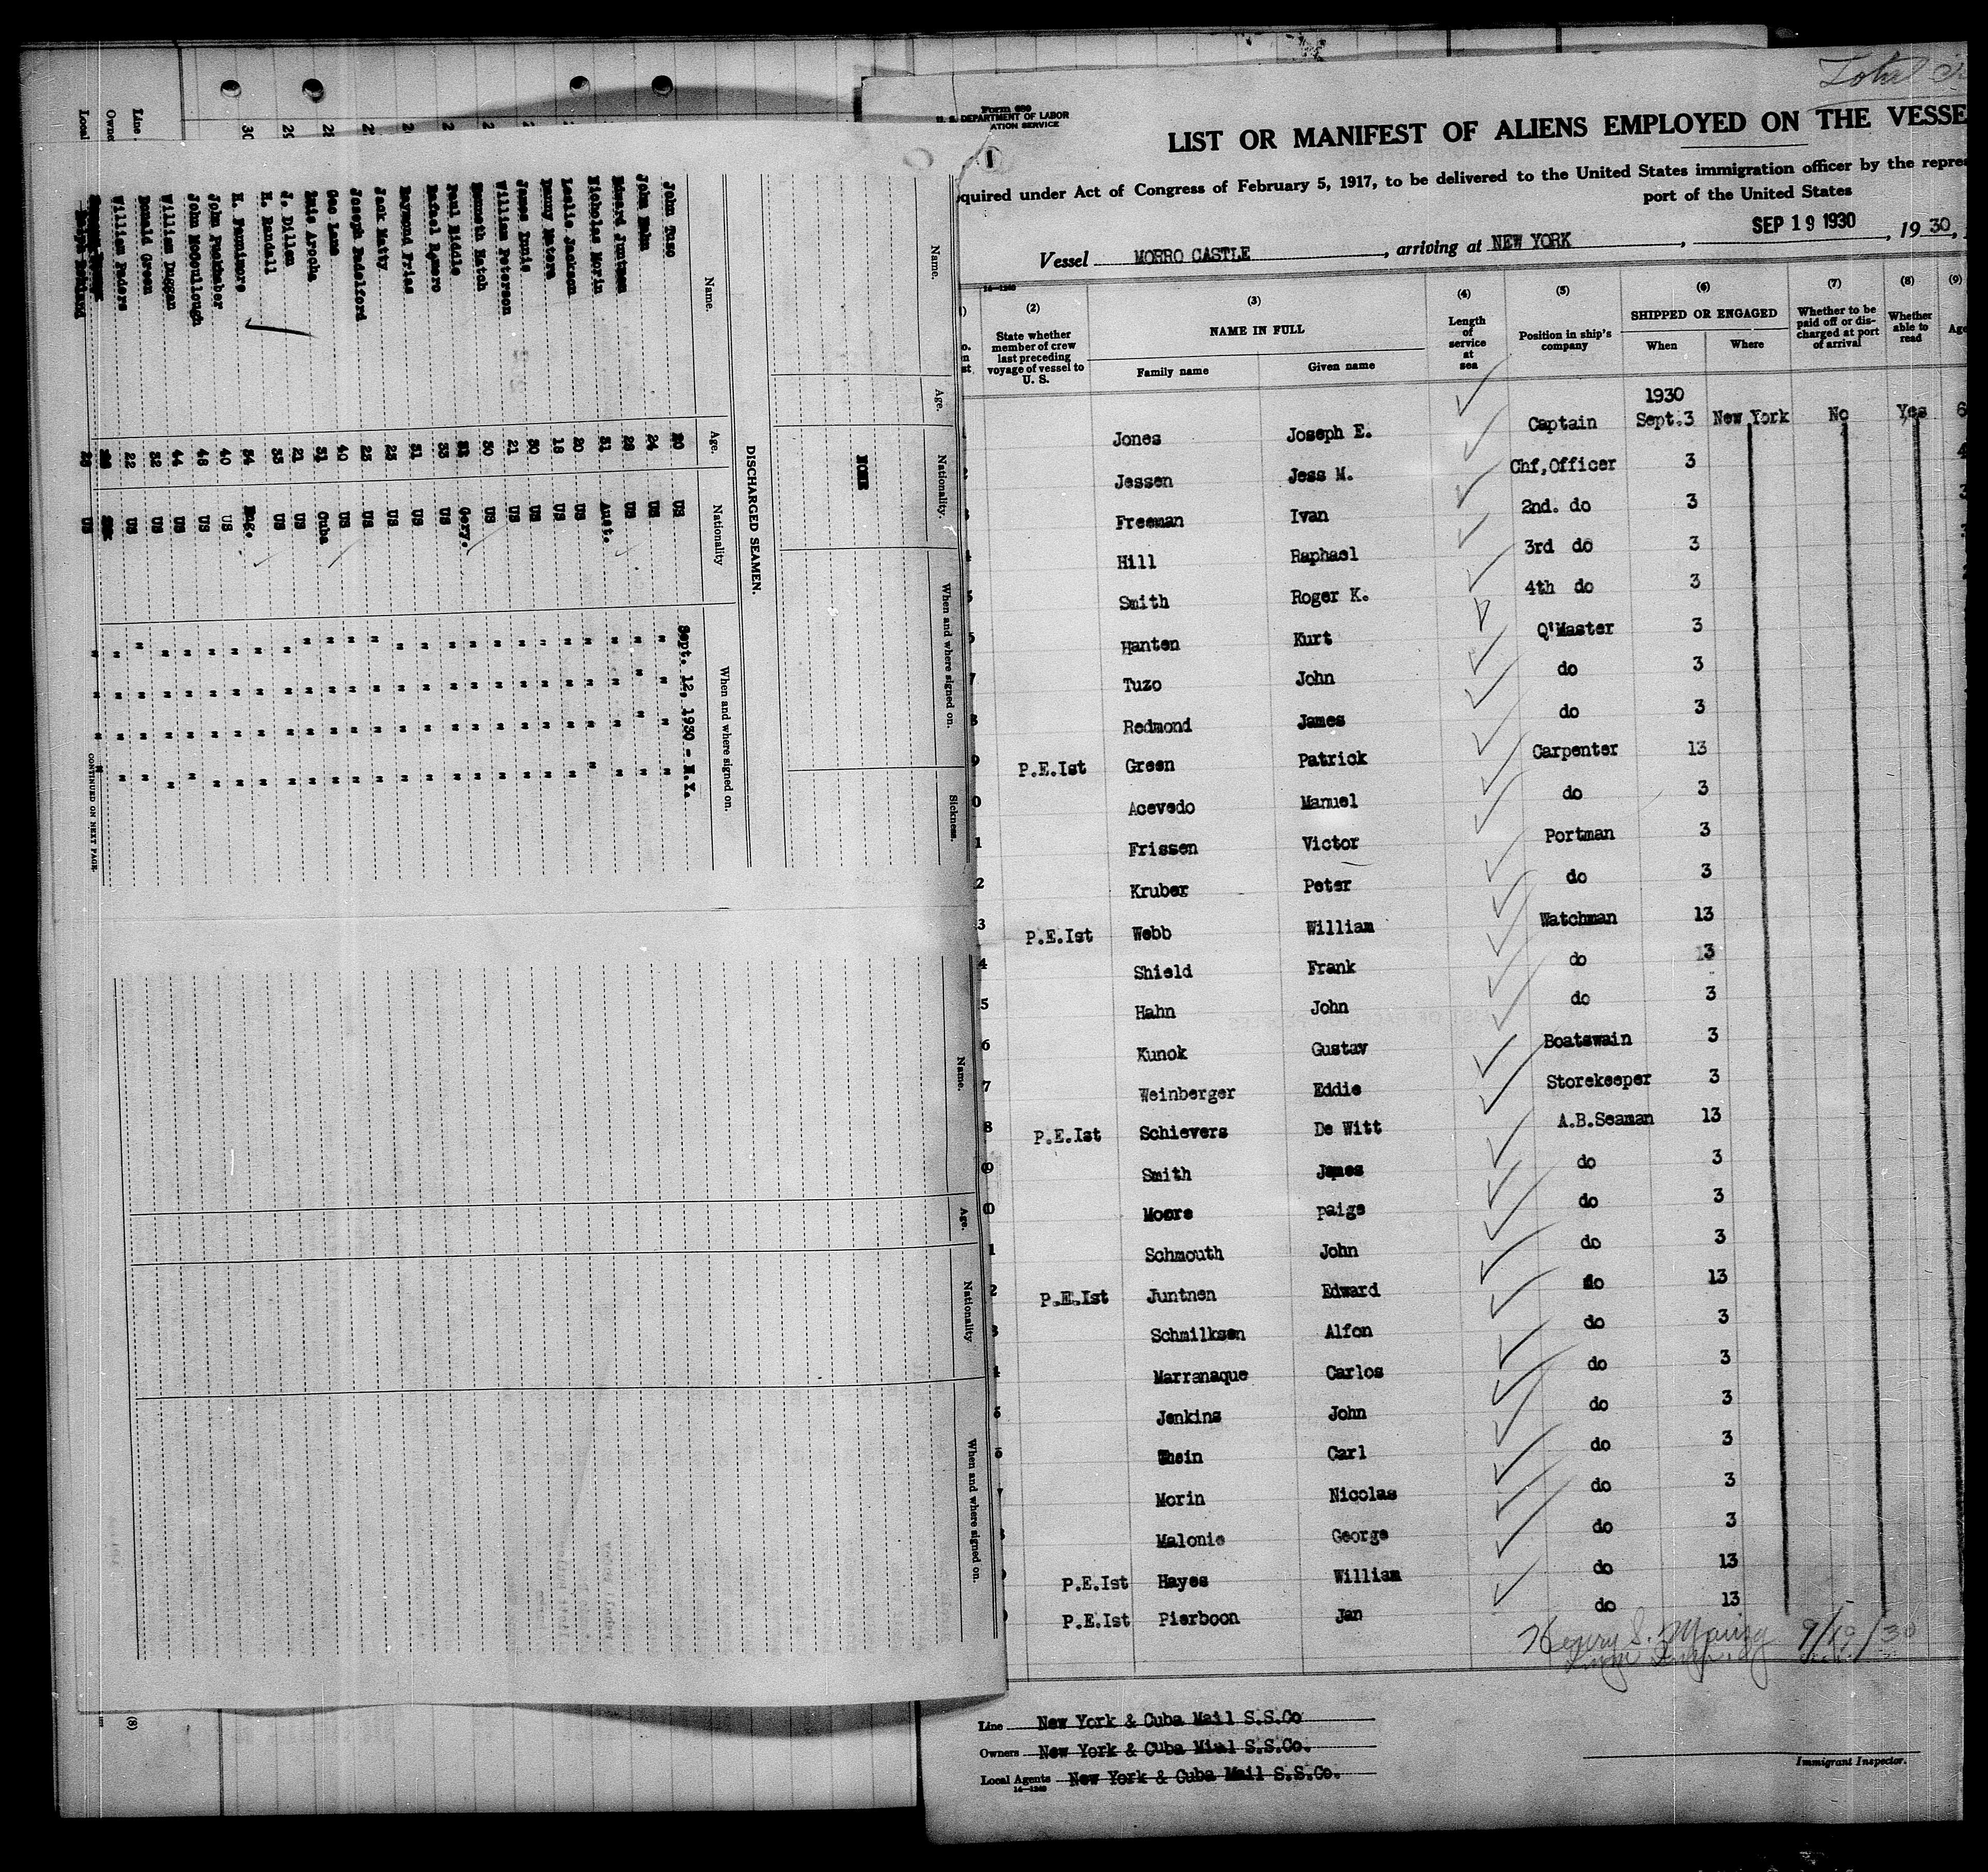 Line
Owne
Local
30
Name.
Age.
Nationality.
When and where signed on.
Sickness.
NONE
DISCHARGED SEAMEN.
Name.
Age.
Nationality
When and where signed on.
John Tuso 20 US Sept. 12, 1930 - N.Y.
John Hahn 24 US " " " "
Edward Juntnen 28 US " " " "
Nicholas Morin 31 Aust. " " " "
Leslie Jackson 20 US " " " "
Danny Matera 18 US " " " "
James Innis 30 US " " " "
William Peterson 21 US " " " "
Kenneth Hatch 30 US " " " "
Paul Riddle Gery. " " " "
Rafael Romero 33 US " " " "
Raymond Frias 31 US " " " "
Jack Maity 25 US " " " "
Joseph Radelford 25 US " " " "
Geo Lane 40 US " " " "
Luis Arocha 31 Cuba " " " "
J. Dillen 21 US " " " "
H. Randall 33 US " " " "
K. Fennimore 34 Eng. " " " "
John Puckhaber 40 US " " " "
John McCullough 48 US " " " "
William Duggan 44 US " " " "
Donald Green 32 US " " " "
William Faders 22 US " " " "
28 US " " " "
CONTINUED ON NEXT PAGE.
Name.
Age.
Nationality
When and where signed on.
(8)
Total
Form 680
U. S. DEPARTMENT OF LABOR
ATION SERVICE
1
LIST OR MANIFEST OF ALIENS EMPLOYED ON THE VESSE
quired under Act of Congress of February 5, 1917, to be delivered to the United States immigration officer by the repres
port of the United States
Vessel MORRO CASTLE, arriving at NEW YORK, SEP 19 1930, 1930,
14—1240
(2) (3) (4) (5) (6) (7) (8) (9)
State whether member of crew last preceding voyage of vessel to U. S.
NAME IN FULL
Family name Given name
Length of service at sea
Position in ship's company
SHIPPED OR ENGAGED
When Where
Whether to be paid off or discharged at port of arrival
Whether able to read
Age
1930
Jones Joseph E. Captain Sept.3 New York No Yes 6
Jessen Jess M. Chf,Officer 3 4
Freeman Ivan 2nd. do 3 3
Hill Raphael 3rd do 3 3
Smith Roger K. 4th do 3
Hanten Kurt Q'Master 3
7 Tuzo John do 3
8 Redmond James do 3
9 P.E.Ist Green Patrick Carpenter 13
0 Acevedo Manuel do 3
1 Frissen Victor Portman 3
2 Kruber Peter do 3
3 P.E.Ist Webb William Watchman 13
4 Shield Frank do 13
5 Hahn John do 3
6 Kunok Gustav Boatswain 3
7 Weinberger Eddie Storekeeper 3
8 P.E.Ist Schievers De Witt A.B.Seaman 13
9 Smith James do 3
0 Moore paige do 3
1 Schmouth John do 3
2 P.E.Ist Juntnen Edward do 13
3 Schmilksen Alfon do 3
4 Marranaque Carlos do 3
5 Jenkins John do 3
6 Thein Carl do 3
7 Morin Nicolas do 3
8 Malonie George do 3
P.E.Ist Hayes William do 13
P.E.Ist Pierboon Jan do 13
Henry S. 9/19/30
Line New York & Cuba Mail S.S.Co
Owners New York & Cuba Mial S.S.Co.
Local Agents New York & Cuba Mail S.S.Co.
14—1240
Immigrant Inspector.